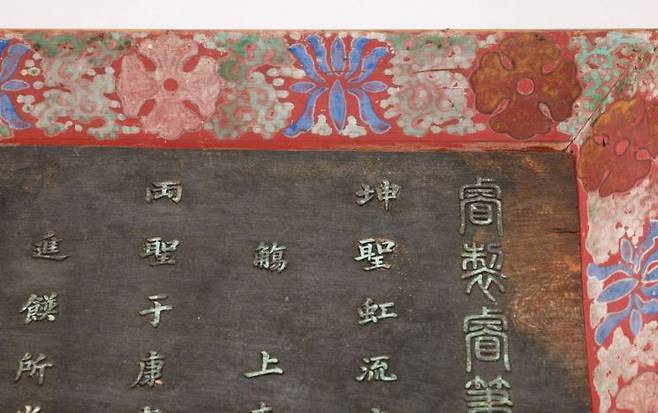 睿製睿筆
坤聖虹流
觴上
兩聖于康
進饌所